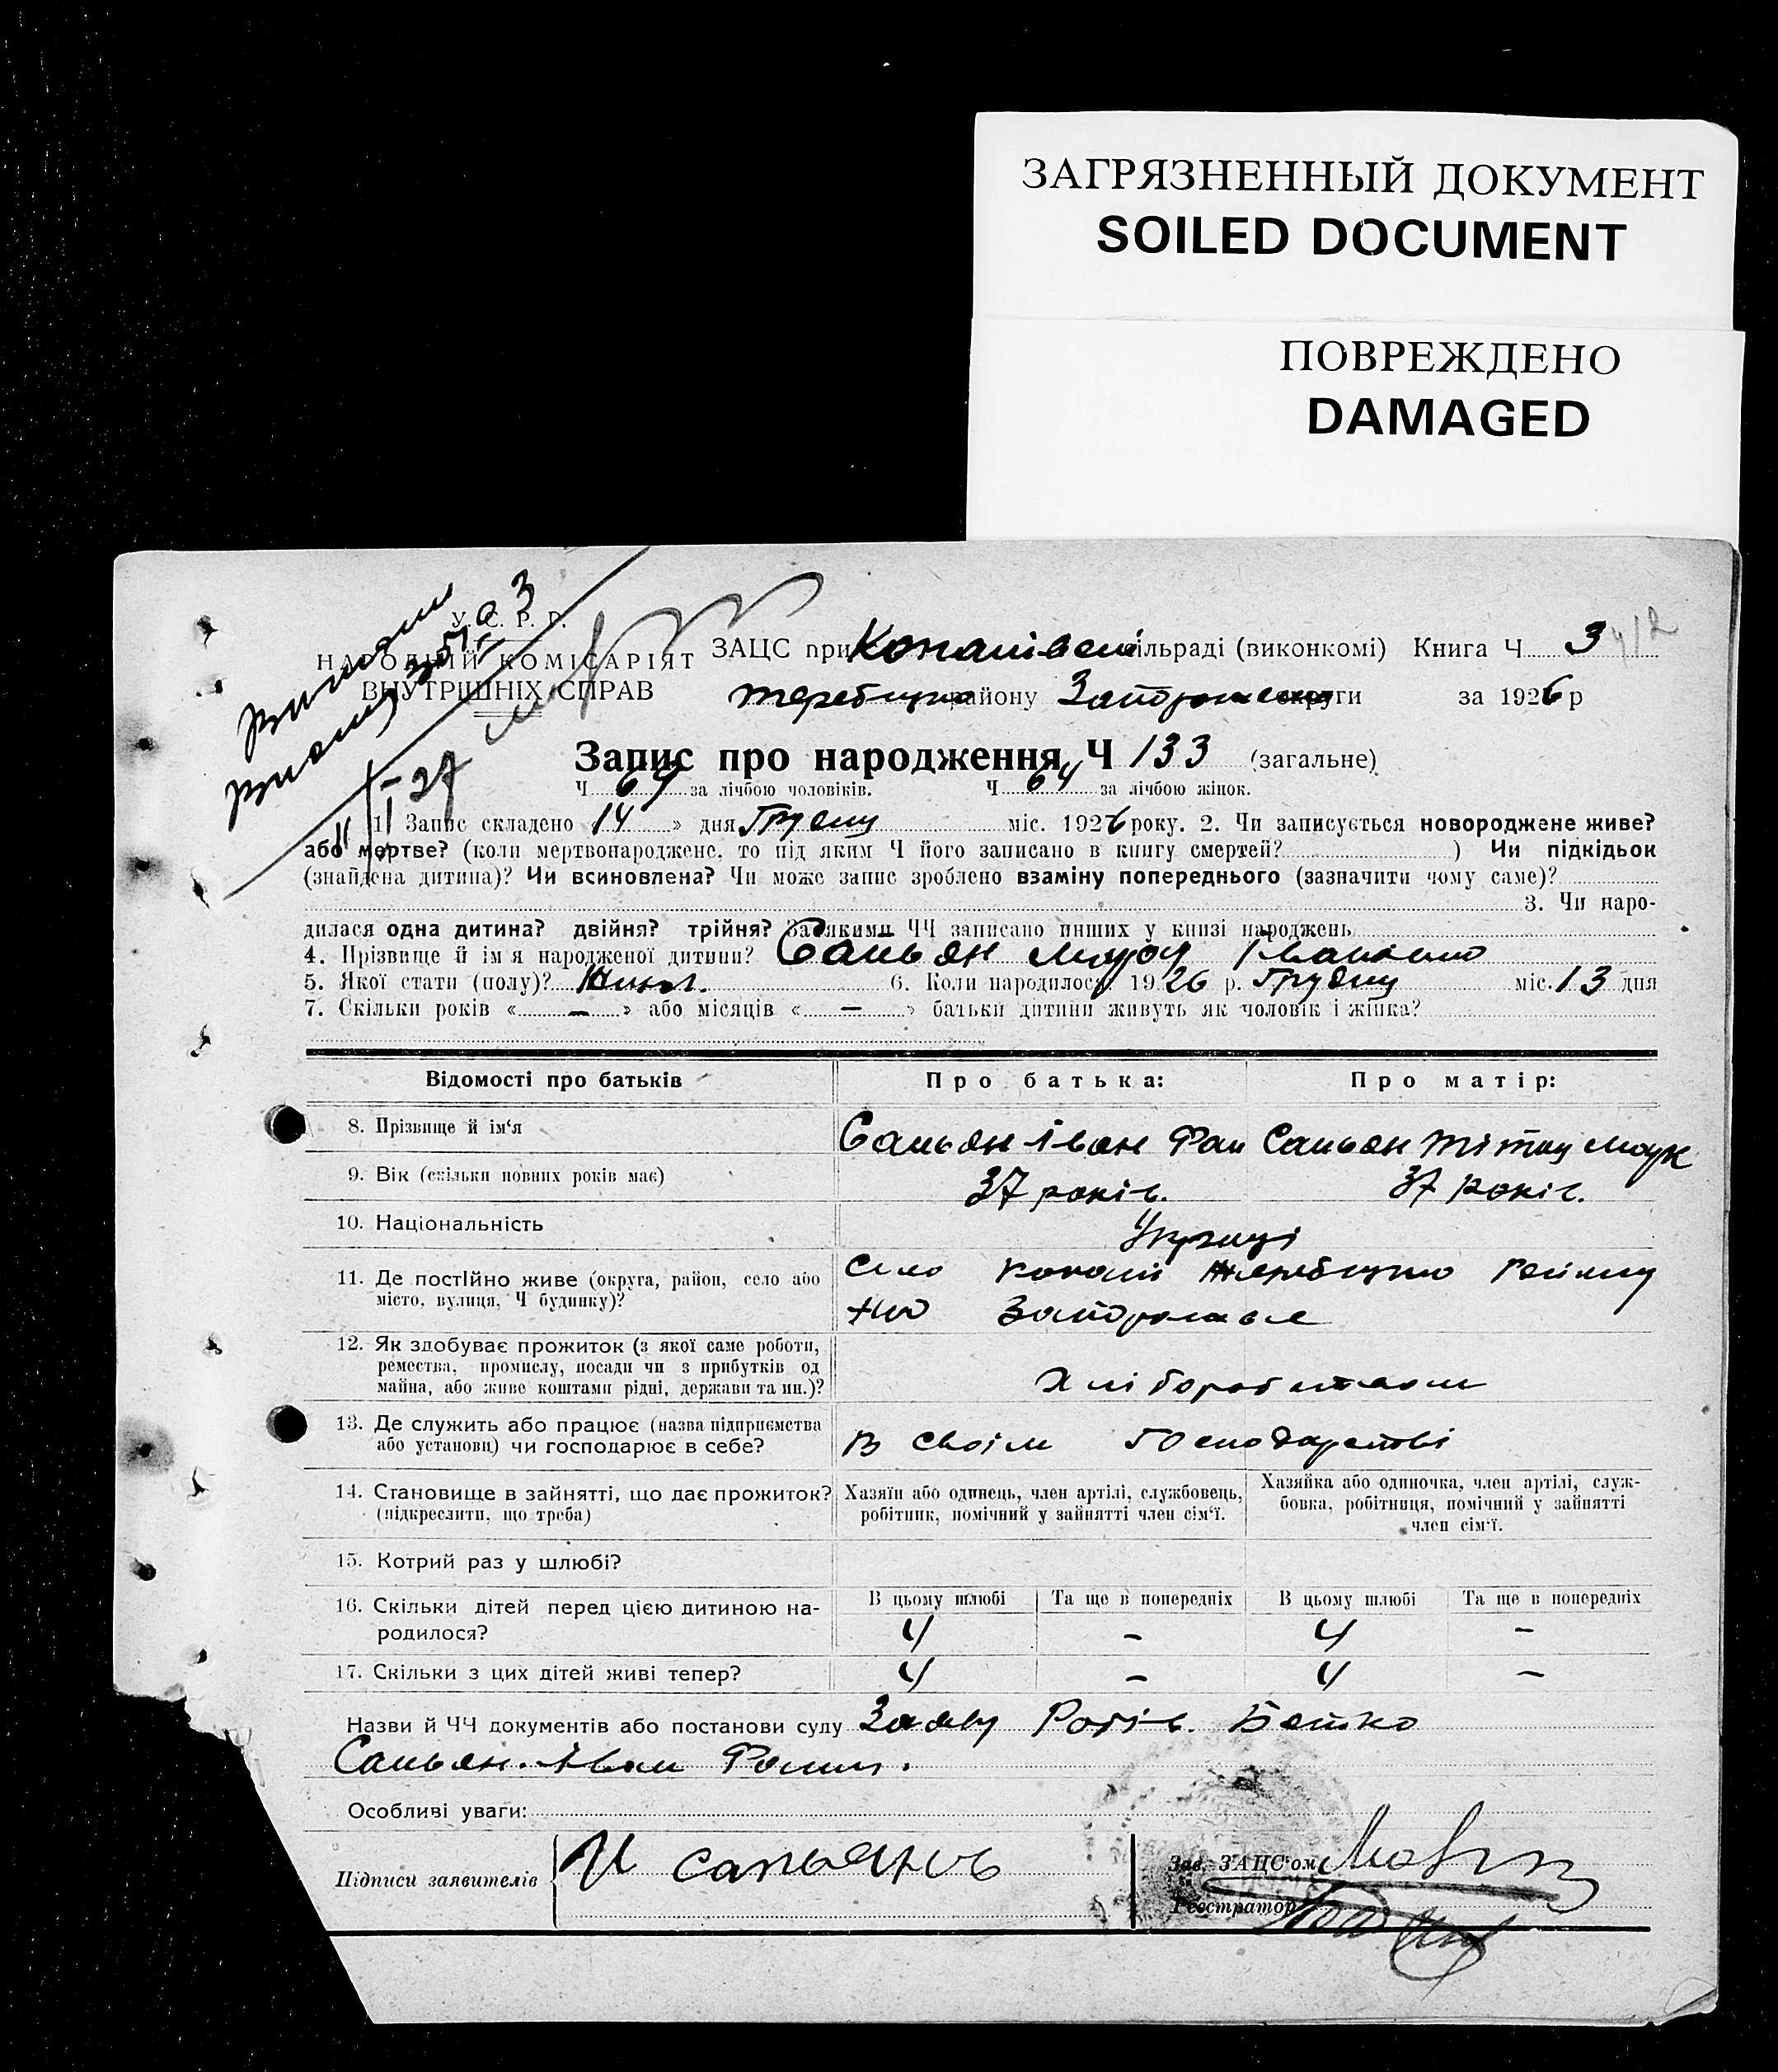 ЗАГРЯЗНЕННЫЙ ДОКУМЕНТ
SOILED DOCUMENT
ПОВРЕЖДЕНО
DAMAGED
У. С. Р. Р.
НАРОДНИЙ КОМІСАРІЯТ
ВНУТРІШНІХ СПРАВ
27
ЗАЦС при сільраді (виконкомі) Книга Ч 3
району округи за 1926 р
Запис про народження Ч 133 (загальне)
Ч 69 за лічбою чоловіків. Ч 64 за лічбою жінок.
1. Запис складено 14 » дня Грудня міс. 1926 року. 2. Чи записується новороджене живе?
або мертве? (коли мертвонароджене, то під яким Ч його записано в книгу смертей? ) Чи підкідьок
(знайдена дитина)? Чи всиновлена? Чи може запис зроблено взаміну попереднього (зазначити чому саме)?
3. Чи наро-
дилася одна дитина? двійня? трійня? За якими ЧЧ записано инших у книзі народжень
4. Прізвище й ім'я народженої дитини? Сапьян
5. Якої стати (полу)? 6. Коли народилося 1926 р. Грудня міс. 13 дня
7. Скільки років « — » або місяців « — » батьки дитини живуть як чоловік і жінка?
Відомості про батьків Про батька: Про матір:
8. Прізвище й ім'я Сапьян Іван Фом Сапьян
9. Вік (скільки повних років має) 37 років. 37 років.
10. Національність Українці
11. Де постійно живе (округа, район, село або Село
місто, вулиця, Ч будинку)?
12. Як здобуває прожиток (з якої саме роботи,
ремества, промислу, посади чи з прибутків од
майна, або живе коштами рідні, держави та ин.)?
13. Де служить або працює (назва підприємства
або установи) чи господарює в себе? В своїм господарстві
14. Становище в зайнятті, що дає прожиток? Хазяїн або одинець, член артілі, службовець, Хазяйка або одиночка, член артілі, служ-
(підкреслити, що треба) робітник, помічний у зайнятті член сім'ї. бовка, робітниця, помічний у зайнятті
член сім'ї.
15. Котрий раз у шлюбі?
16. Скільки дітей перед цією дитиною на- В цьому шлюбі Та ще в попередніх В цьому шлюбі Та ще в попередніх
родилося? 4 – 4 –
17. Скільки з цих дітей живі тепер? 4 – 4 –
Назви й ЧЧ документів або постанови суду Батько
Сапьян Іван Фомич.
Особливі уваги:
Підписи заявителів И Сапьяновъ Зав. ЗАЦС'ом
Реєстратор